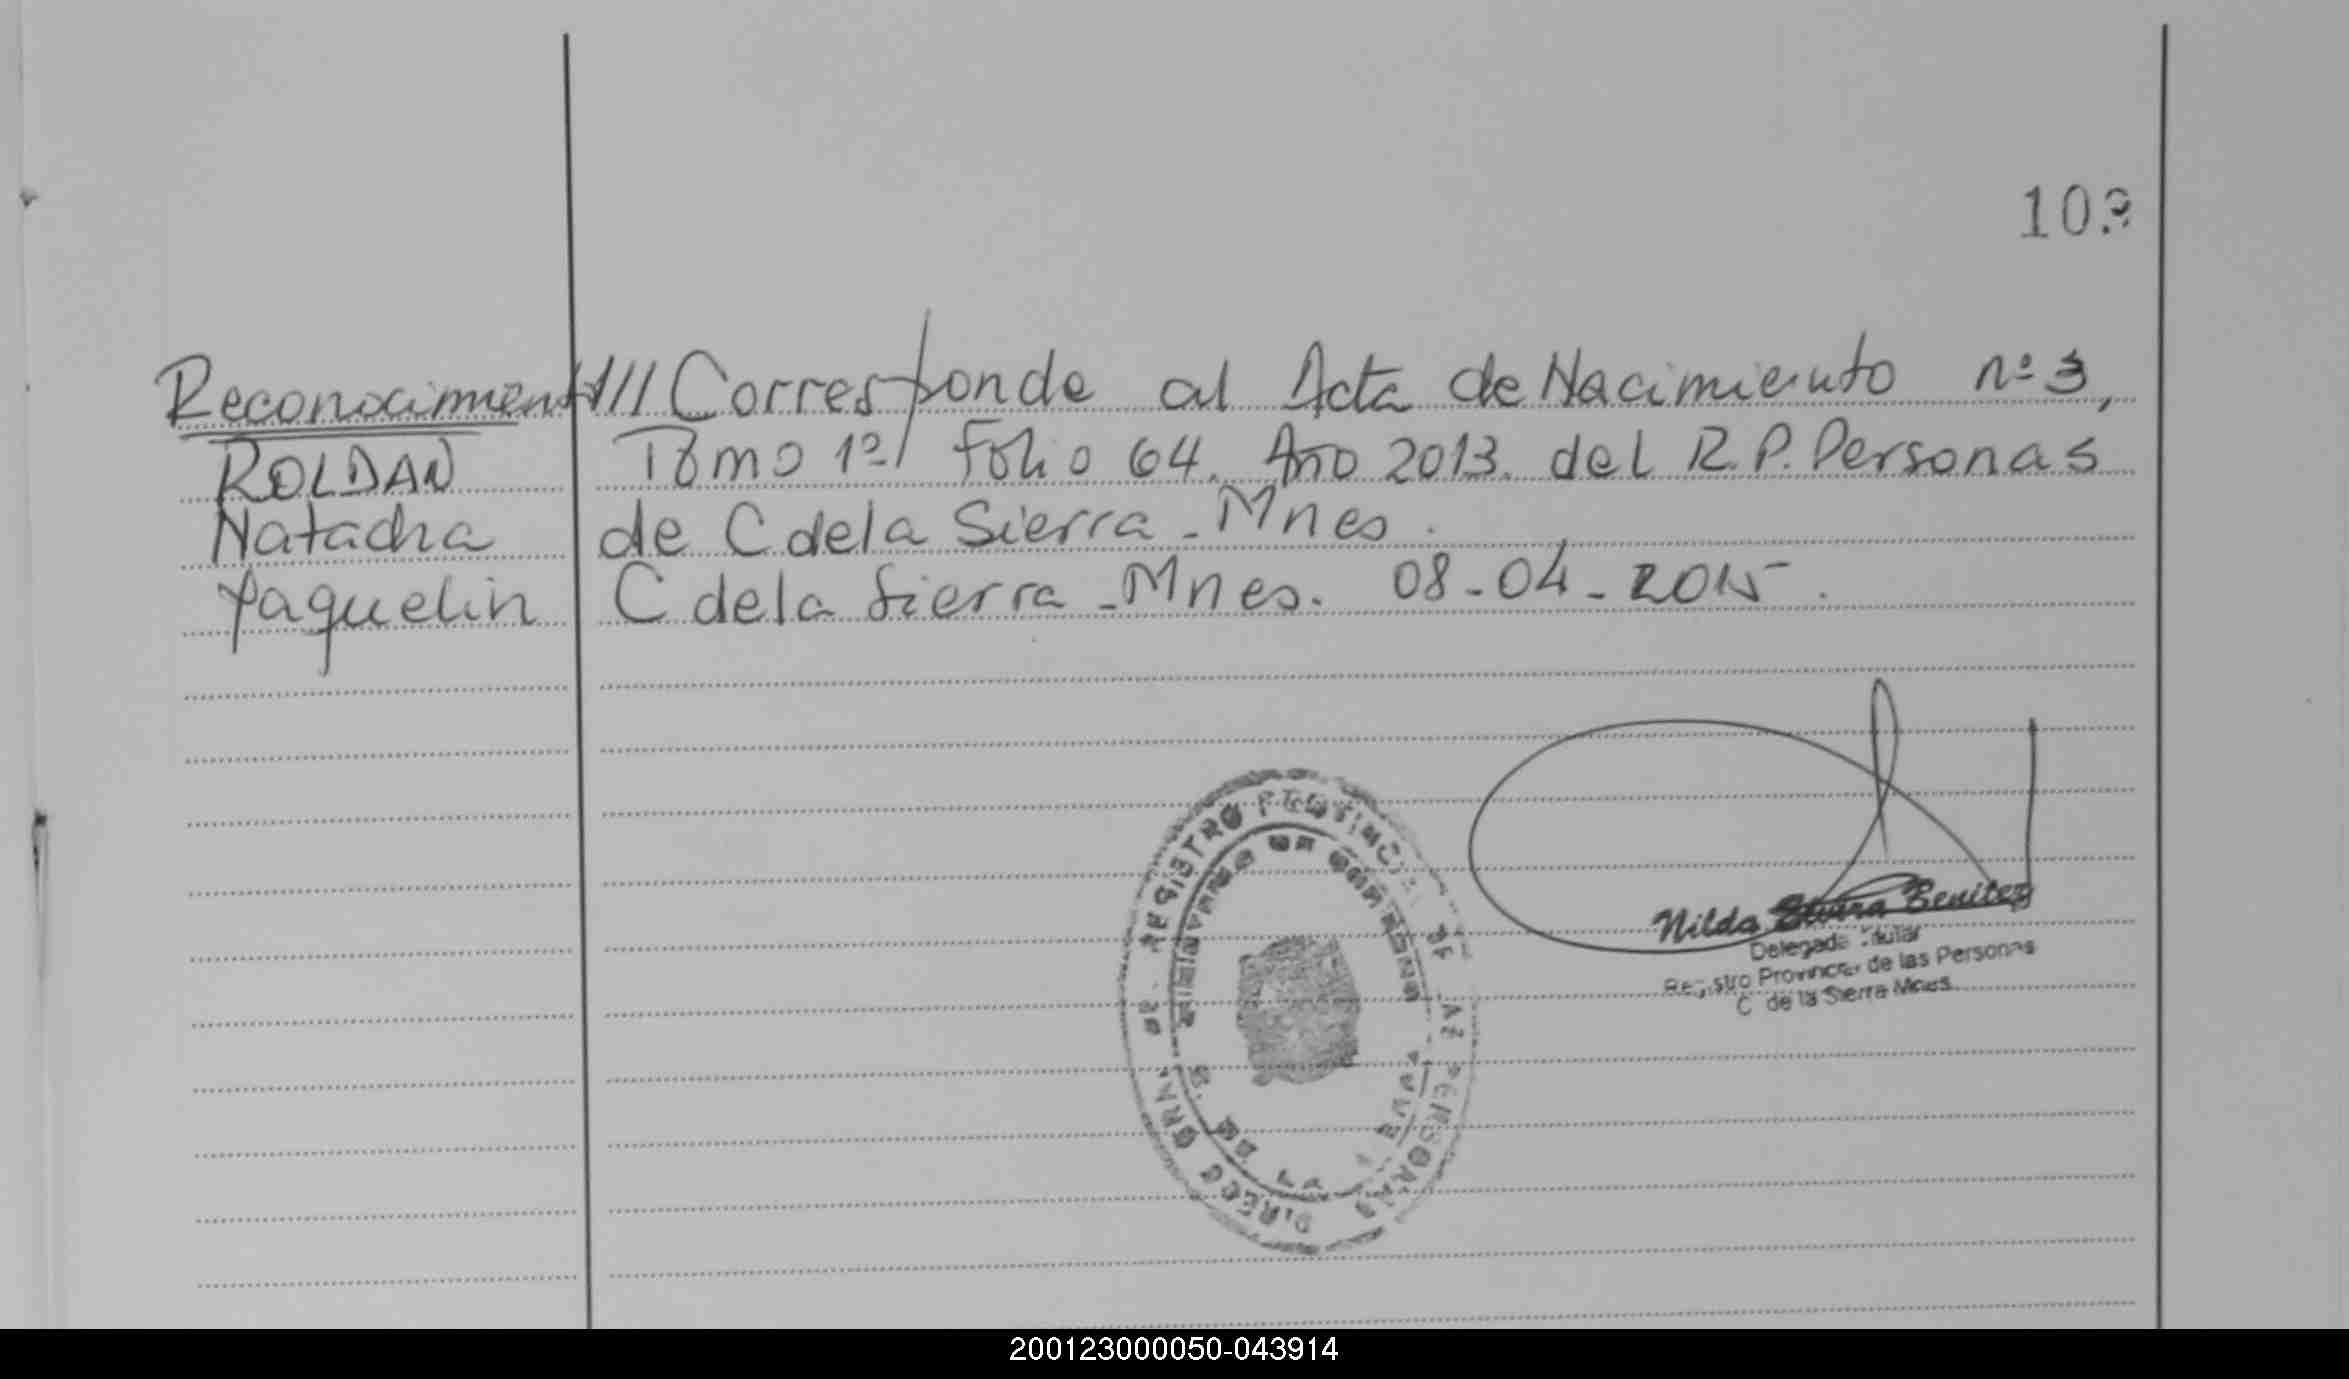 Reconocimiento /// Corresponde al Acta de Nacimiento nº 3,
ROLDAN Tomo 1º/ Folio 64. Año 2013. del R.P. Personas
Natacha de C de la Sierra - Mnes.
Yaquelin C de la Sierra - Mnes. 08-04-2015.
REGISTRO PROVINCIAL DE LAS PERSONAS
C. DE LA
Nilda Elvira Benitez
Delegada Titular
Registro Provincial de las Personas
C de la Sierra Mnes
200123000050-043914